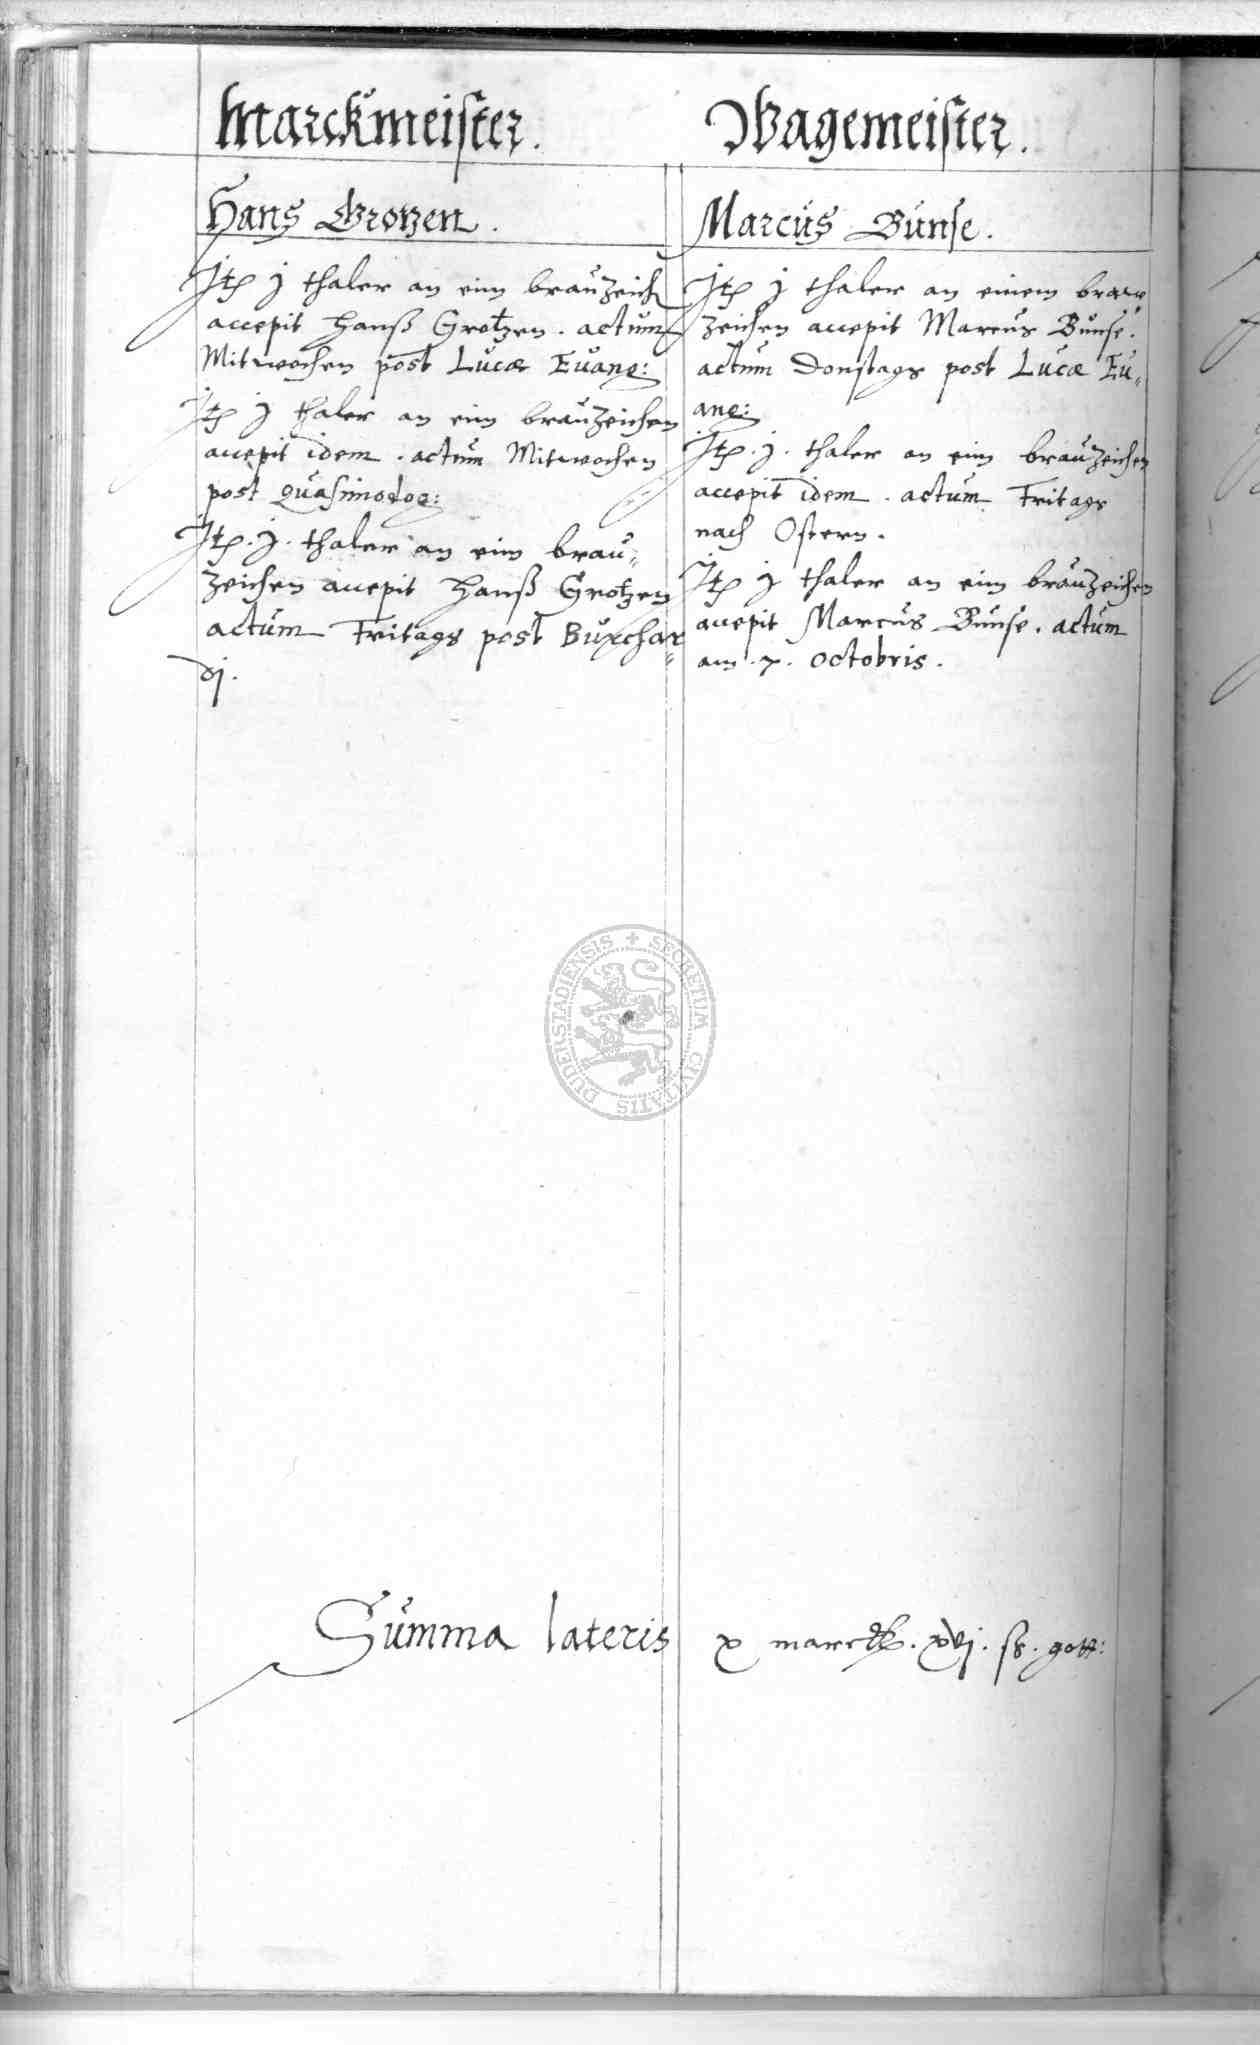 Marckmeister.
Hans Grotzen.
Jtem j thaler an eim brauzeich
accepit Hanß Grotzen. actum
Mitwochen post Lucæ Euang:
Jtem j thaler an eim brauzeichen
accepit idem. actum Mitwochen
post Quasimodog:
Jtem .j. thaler an eim brau„
zeichen accepit Hanß Grotzen
actum Fritags post Burchar„
dj.
Wagemeister.
Marcus Bunse.
Jtem j thaler an einem braw
zeichen accepit Marcus Bunse.
actum Donstags post Lucæ Eu„
ang:
Jtem .j. thaler an eim brauzeichen
accepit idem. actum Fritags
nach Ostern.
Jtem j thaler an eim brauzeichen
accepit Marcus Bunse. actum
am .7. octobris.
Summa lateris x marck. xvj. ß. gott:
DUDERSTADIENSIS + SECRETUM CIVITATIS